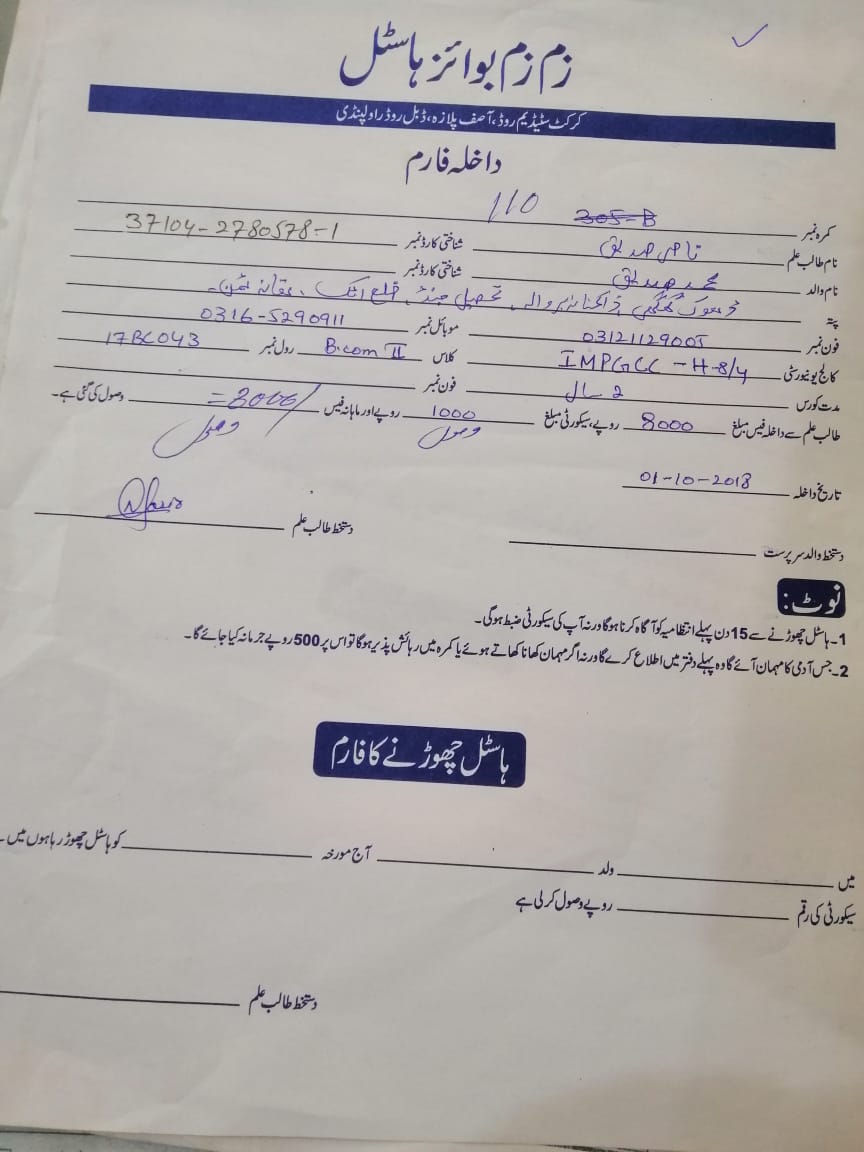 زم زم بوائز ہاسٹل
کرکٹ سٹیڈیم روڈ، آصف پلازہ، ڈبل روڈ راولپنڈی
داخلہ فارم
کمرہ نمبر 305-B 110
نام طالب علم صدیق شناختی کارڈ نمبر 37104-2780578-1
نام والد محمد صدیق شناختی کارڈ نمبر
پتہ تحصیل جنڈ ضلع اٹک
فون نمبر 03121129005 موبائل نمبر 0316-5290911
کالج یونیورسٹی IMPGCC - H-8/4 کلاس B.com II رول نمبر 17BC043
مدت کورس 2 سال فون نمبر
طالب علم سے داخلہ فیس مبلغ 8000 روپے، سیکورٹی مبلغ 1000 روپے اور ماہانہ فیس وصول کی گئی ہے۔
وصول وصول
تاریخ داخلہ 01-10-2018
دستخط والد سرپرست دستخط طالب علم
نوٹ:
1۔ ہاسٹل چھوڑنے سے 15 دن پہلے انتظامیہ کو آگاہ کرنا ہوگا ورنہ آپ کی سیکورٹی ضبط ہوگی۔
2۔ جس آدمی کا مہمان آئے گا وہ پہلے دفتر میں اطلاع کرے گا ورنہ اگر مہمان کھانا کھاتے ہوئے یا کمرہ میں رہائش پذیر ہوگا تو اس پر 500 روپے جرمانہ کیا جائے گا۔
ہاسٹل چھوڑنے کا فارم
میں ولد آج مورخہ کو ہاسٹل چھوڑ رہا ہوں میں۔
سیکورٹی کی رقم روپے وصول کر لی ہے
دستخط طالب علم